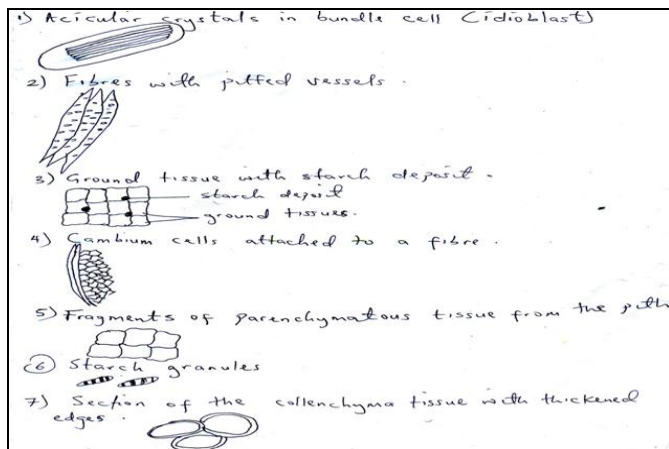 1) Acicular crystals in bundle cell (idioblast)
2) Fibres with pitted vessels.
3) Ground tissue with starch deposit.
starch deposit
ground tissues.
4) Cambium cells attached to a fibre.
5) Fragments of parenchymatous tissue from the pith
6) Starch granules
7) Section of the collenchyma tissue with thickened
edges.